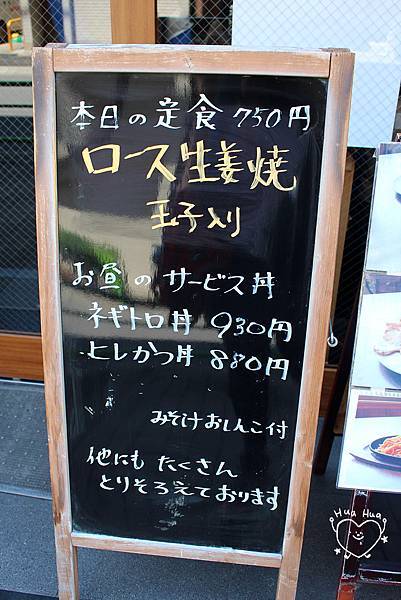 本日の定食 750円
ロース生姜焼
玉子入り
お昼のサービス丼
ネギトロ丼 930円
ヒレかつ丼 880円
みそ汁おしんこ付
他にも たくさん
とりそろえております
Hua Hua